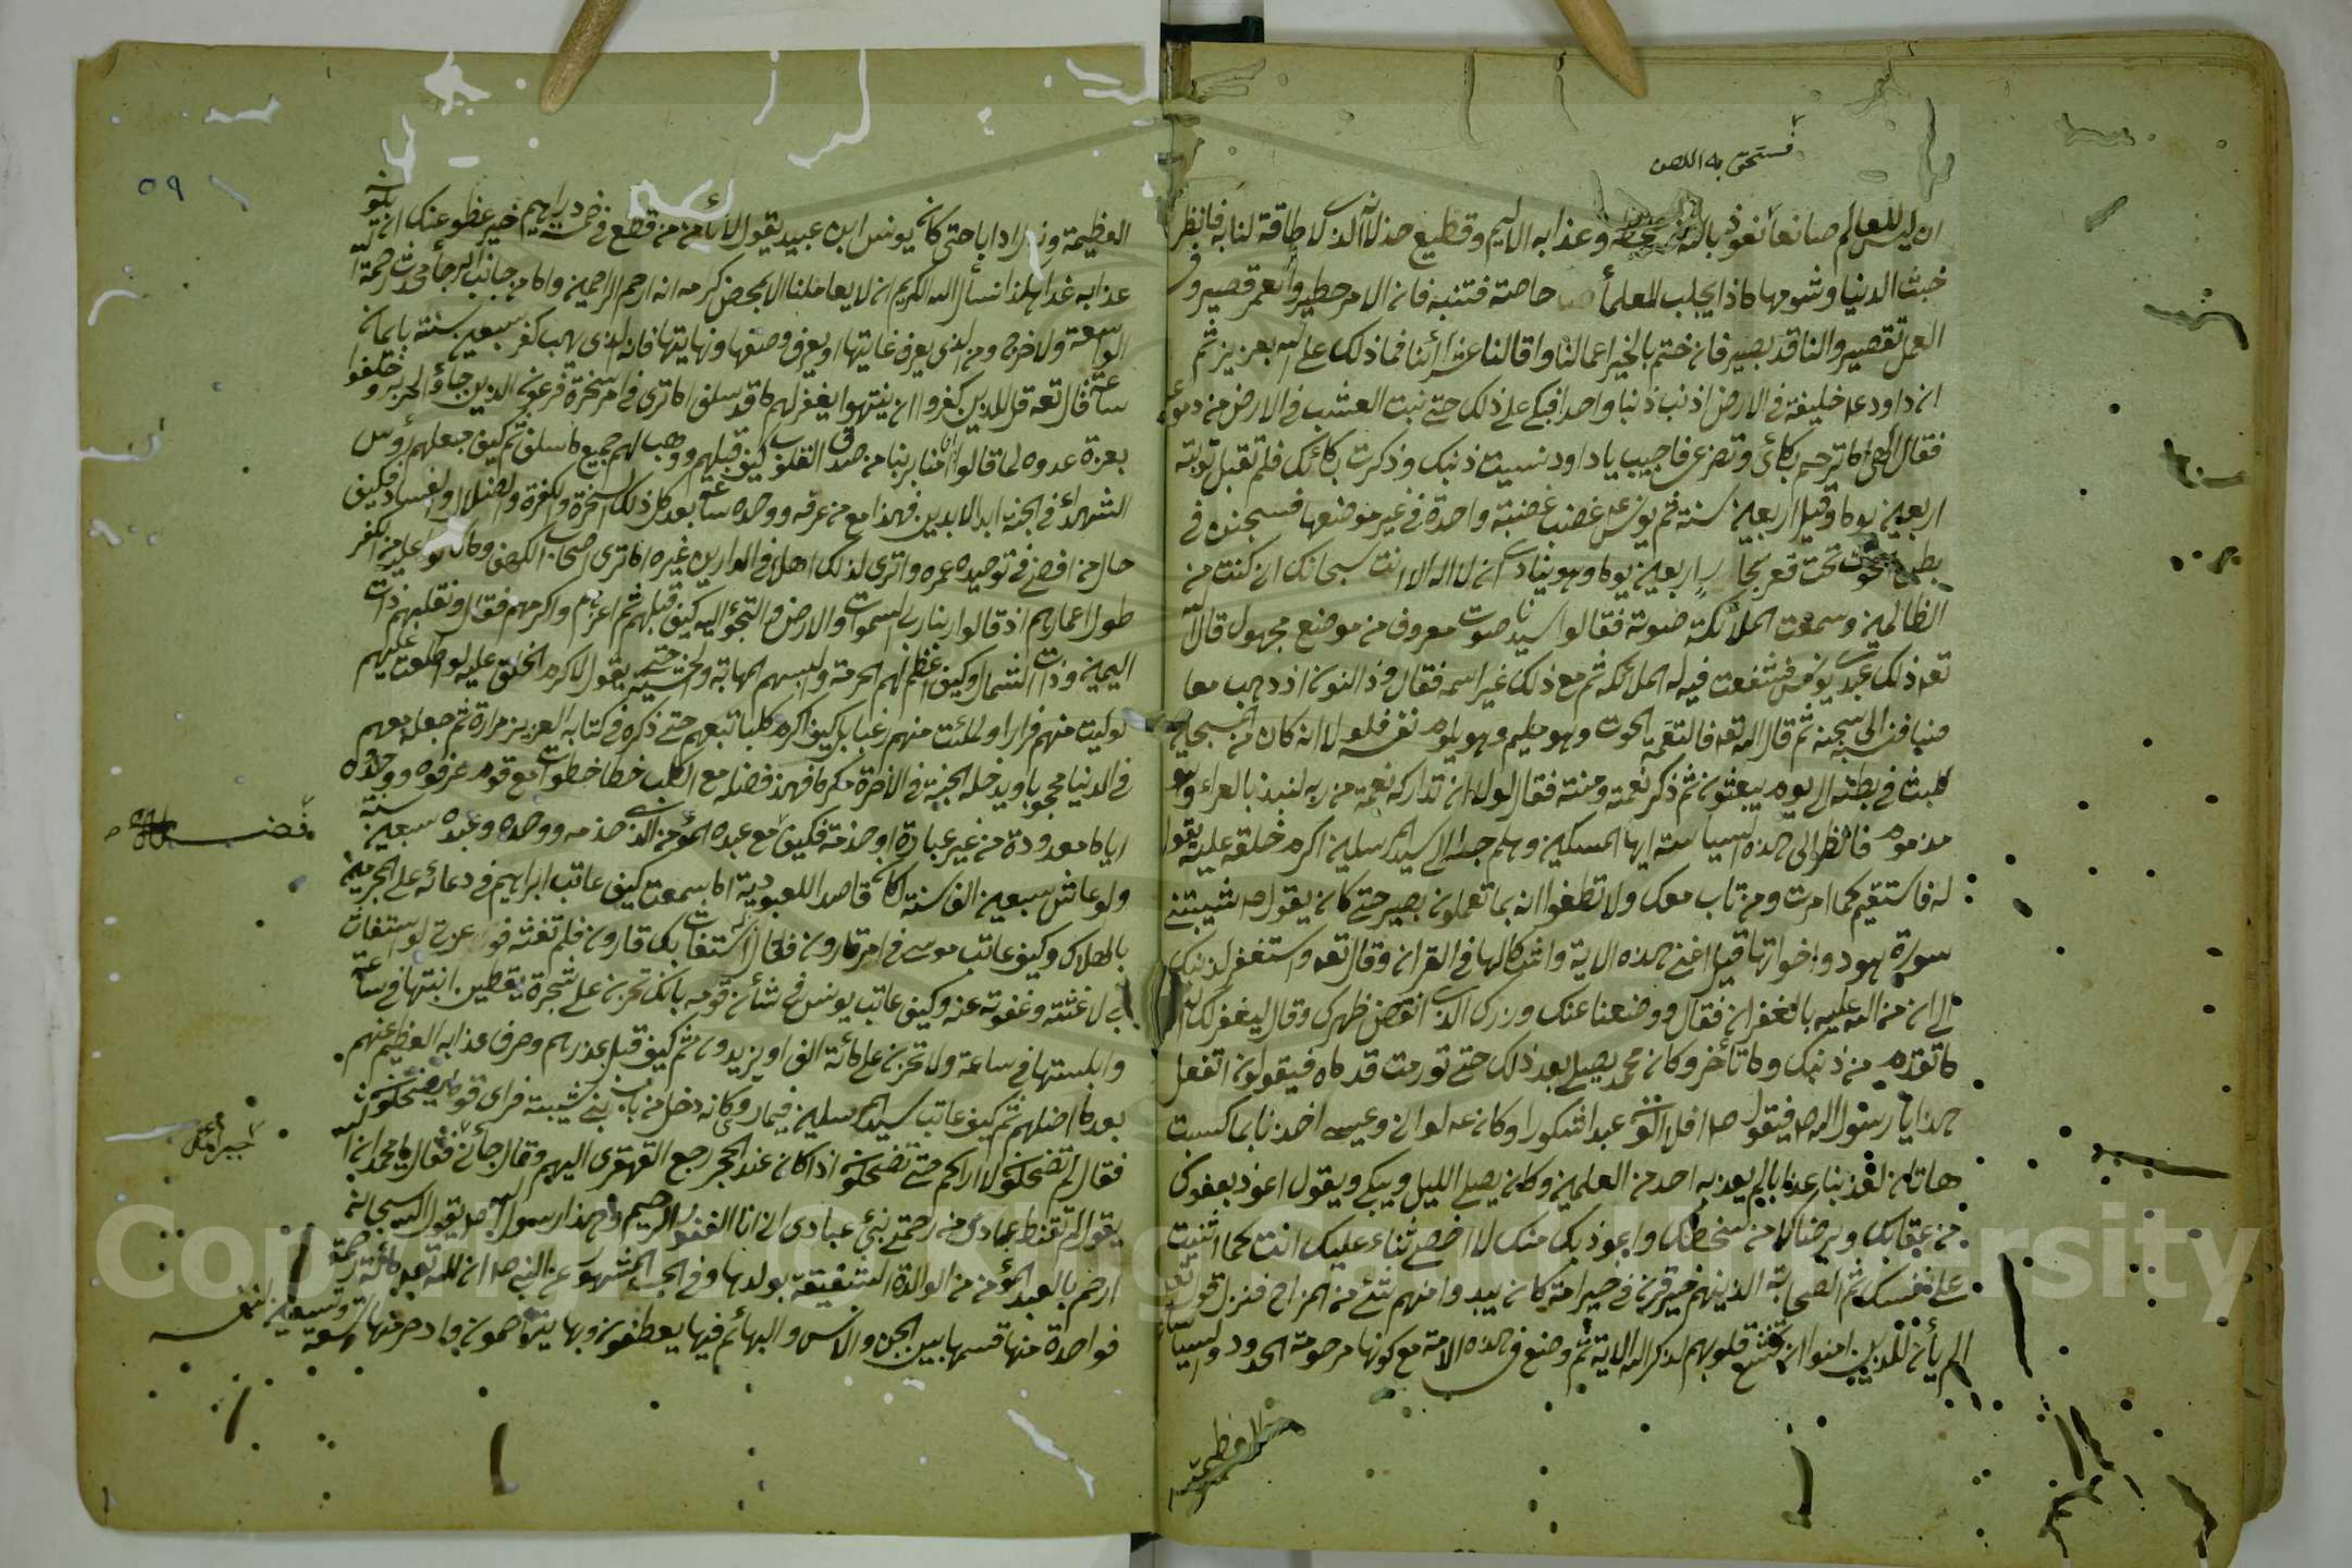 فستحق به اللعن
ان ليس للعالم صانعا نعوذ بالله من سخطه وعذابه الاليم وقطيع خذلانه الذى لا طاقة لنا به فانظر
خبث الدنيا وشومها ماذا يجلب للعلماء خاصته فتنبه فان الامر خطير والعمر قصير وفى
العمل تقصير والناقد بصير فان ختم بالخير اعمالنا واقالنا عثراتنا فما ذلك على الله بعزيز ثم
ان داود عم خليفة فى الارض اذنب ذنبا واحدا فبكى على ذلك حتى نبت العشب فى الارض من دموعه
فقال الهى اما ترحم بكائى وتضرعى فاجيب يا داود نسيت ذنبك وذكرت بكائك فلم تقبل توبته
اربعين يوما وقيل اربعين سنة ثم يونس عم غضب غضبة واحدة فى غير موضعها فسجنه فى
بطن الحوت تحت قعر بحار اربعين يوما وهو ينادى ان لا اله الا انت سبحانك انى كنت من
الظالمين وسمعت الملائكة صوته فقالوا سيدنا صوت معروف من موضع مجهول قال الله
تعه ذلك عبدى يونس فشفعت فيه له الملائكة ثم مع ذلك غير اسمه فقال وذا النون اذ ذهب مغا
ضبا فنسبه الى سجنه ثم قال الله تعه فالتقمه الحوت وهو مليم وهو يلوم نفسه فلولا انه كان من المسبحين
للبث فى بطنه الى يوم يبعثون ثم ذكر نعمته ومنته فقال لولا ان تداركه نعمة من ربه لنبذ بالعراء وهو
مذموم فانظر الى هذه السياسة ايها المسكين وهلم جرا الى سيد المرسلين اكرم خلقه عليه يقول
له فاستقيم كما امرت ومن تاب معك ولا تطغوا انه بما تعملون بصير حتى كان يقول صم شيبتنى
سورة هود واخواتها قيل اعنى هذه الاية وامثالها فى القران وقال تعه واستغفر لذنبك
الى ان من الله عليه بالغفران فقال ووضعنا عنك وزرك الذى انقض ظهرك وقال ليغفر لك الله
ما تقدم من ذنبك وما تأخر وكان محمد يصلى بعد ذلك حتى تورمت قدماه فيقولون اتفعل
هذا يا رسول الله صم فيقول صم افلا اكون عبدا شكورا وكان عم لو انى وعيسى اخذنا بما كسبت
هاتان لعذبنا عذابا لم يعذبه احد من العلمين وكان يصلى الليل ويبكى ويقول اعوذ بعفوك
من عقابك وبرضاك من سخطك واعوذ بك منك لا احصى ثناء عليك انت كما اثنيت
على نفسك ثم الصحابة الذين هم خير قرن فى خير امة كان يبدوا منهم شئ من المزاح فنزل قوله تعه
الم يأن للذين امنوا ان تخشع قلوبهم لذكر الله الاية ثم وضع فى هذه الامة مع كونها مرحومة الحدود والسياسات
العظيمة
٥٩
العظيمة وزجرا دابا حتى كان يونس ابن عبيد يقول لا تأمن من قطع فى خمسة دراهم خير عضو عنك ان يكون
عذابه غدا هكذا نسأل الله الكريم ان لا يعاملنا الا بمحض كرمه انه ارحم الراحمين واما من جانب الرجا فحدث رحمة الله
الواسعة ولا حرج ومن الذى يعرف غايتها او يعرف وصفها ونهايتها فانه الذى يهب كفر سبعين سنة بايمان
ساعة قال تعه قل للذين كفروا ان ينتهوا يغفر لهم ما قد سلف اما ترى فى امر سحرة فرعون الذين جاؤا لحربه وحلفوا
بعزة عدوه لما قالوا امنا بربنا من صدق القلوب كيف قبلهم ووهب لهم جميع ما سلف ثم كيف جعلهم رؤس
الشهداء فى الجنة ابد الابدين فهذا مع من عرفه ووحده ساعة بعد كل ذلك السحرة والكفرة والضلال والفساد فكيف
حال من افضى فى توحيده عمره وا ترى لذلك اهلا فى الدارين غيره اما ترى اصحاب الكهف وما كانوا عليه من الكفر
طول اعمارهم اذ قالوا ربنا رب السموات والارض والتجؤ اليه كيف قبلهم ثم اعزهم واكرمهم فقال ونقلبهم ذات
اليمين وذات الشمال وكيف اعظم لهم الحرمة والبسهم المهابة والخشية حتى يقول لاكرم الخلق عليه لو اطلعت عليهم
لوليت منهم فرارا ولملئت منهم رعبا بل كيف اكرم كلبا تبعهم حتى ذكره فى كتابه العزيز مرارة ثم جعله معهم
فى الدنيا محجوبا ويدخله الجنة فى الاخرة مكرما فهذ فضله مع الكلب خطا خطوات مع قوم عرفوه ووحدوه
اياما معدودة من غير عبادة او خدمة فكيف مع عبده المؤمن الذى خدمه ووحده وعبده سبعين سنة
فضله
ولو عاش سبعين الف سنة لكان قاصدا للعبودية اما سمعت كيف عاتب ابراهيم فى دعائه على المجرمين
بالهلاك وكيف عاتب موسى فى امر قارون فقال استغاث بك قارون فلم تغثه فو عزتى لو استغاث
بى لاغثته وعفوته عنه وكيف عاتب يونس فى شأن قومه بانك تحزن على شجرة يقطين انبتها فى ساعة
وايبستها فى ساعة ولا تحزن على مائة الف او يزيدون ثم كيف قبل عذرهم وصرف عذابه العظيم عنهم
بعد ما اضلهم ثم كيف عاتب سيد المرسلين فيما روى كانه دخل من باب بنى شيبة فراى قوما يضحكون
فقال لم تضحكون لا اراكم حتى تضحكون اذا كان عند الحجر رجع القهقرى اليهم وقال جائنى فقال يا محمد ان الله
جبرائيل
يقول لم تقنط عبادى من رحمتى نبئ عبادى انى انا الغفور الرحيم وهذا رسول الله صم يقول الله سبحانه
ارحم بالعبد المؤمن من الوالدة الشفيقة بولدها وفى الخبر المشهور عن النبى صم ان لله تعه مائة رحمة
فواحدة منها قسمها بين الجن والانس والبهائم فيها يعطفون وبها يتراحمون وادخر منها تسعة وتسعين لنفسه